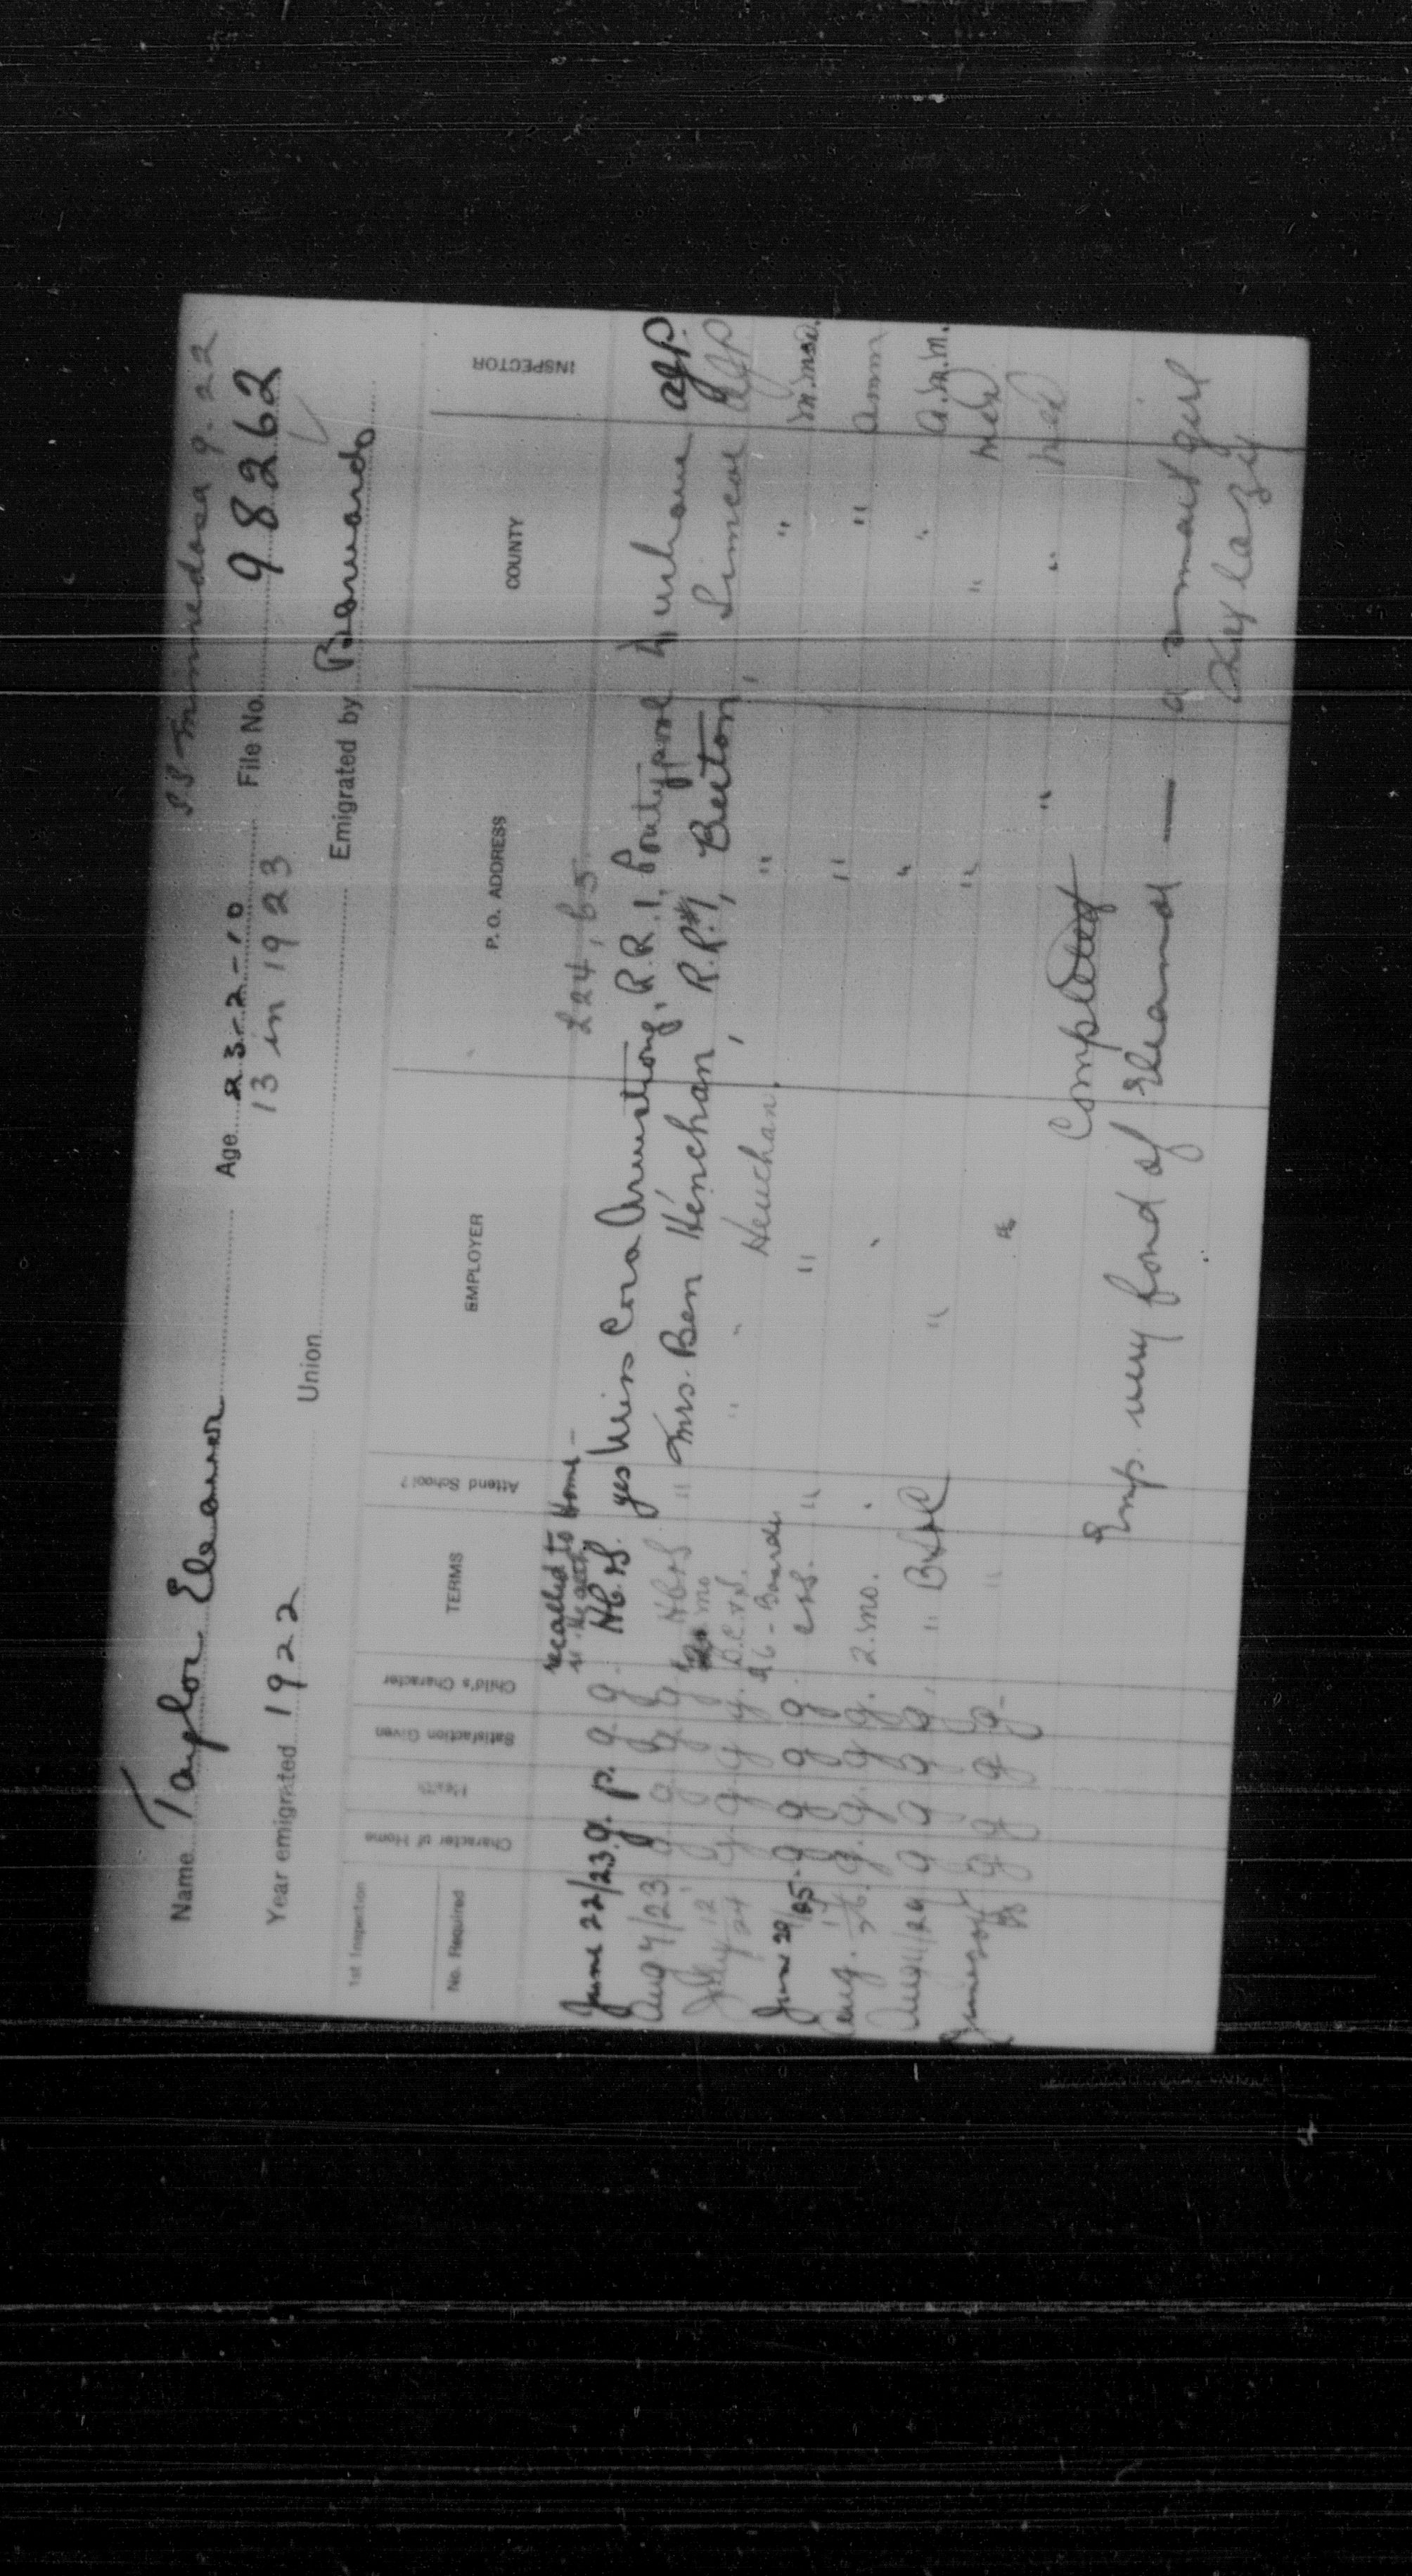 S.S. Minnedosa 9.22
Name Taylor Eleanor Age 25-2-10 File No. 98262
13 in 1923
Year emigrated 1922 Union Emigrated by Barnardo
1st Inspection
No. Required Character of Home Health Satisfaction Given Child's Character TERMS Attend School? EMPLOYER P.O. ADDRESS COUNTY INSPECTOR
recalled to Home -
June 22/23 g. p. g. g. Hb.&S. yes Miss Cora Armstrong, R.R.1, Pontypool Durham agp.
Aug 7/23 g g g g HB&S " Mrs. Ben Henchan, R.R.#1, Beeton, Simcoe agp
July 12/24 g. g. g g. " " Henchan. " " m.m.
June 29/25 g g g g 26 - Boards " " " amm
Aug. 17/26. g. g. g g. 2. mo. " " a.m.m.
Aug 11/27 g g g g " B&C " " "
g g g g " " " "
Completed
Emp. very fond of Eleanor — a smart girl
but lazy